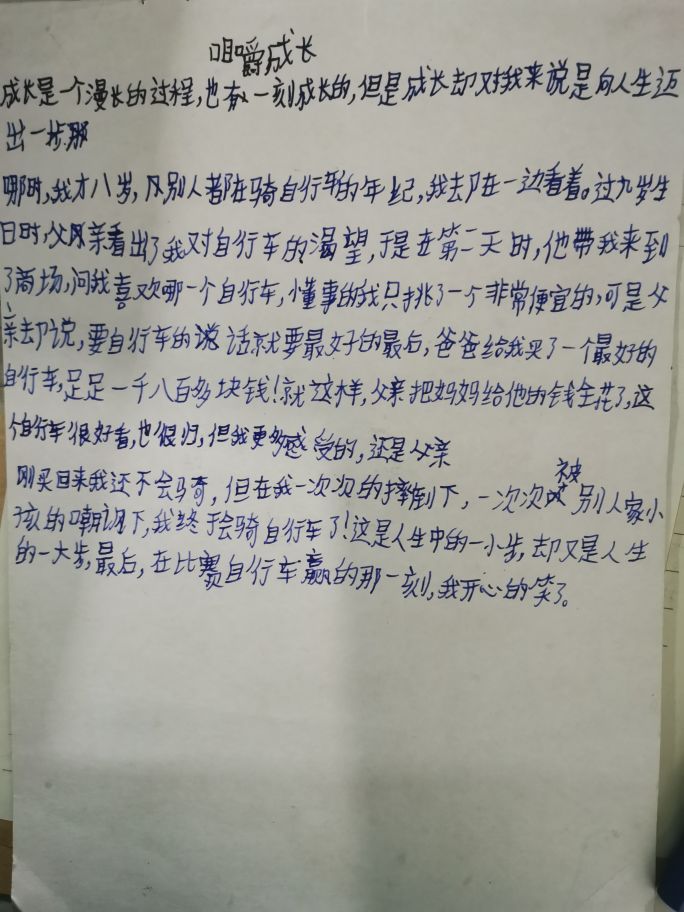 咀嚼成长
成长是一个漫长的过程,也有一刻成长的,但是成长却又对我来说是向人生迈
出一步.那
那时,我才八岁,凡别人都在骑自行车的年纪,我却在一边看着。过九岁生
日时,父母亲看出了我对自行车的渴望,于是在第二天时,他带我来到
了商场,问我喜欢哪一个自行车,懂事的我只挑了一个非常便宜的,可是父
亲却说,要自行车的说话就要最好的最后,爸爸给我买了一个最好的
自行车,足足一千八百多块钱!就这样,父亲把妈妈给他的钱全花了,这
个自行车很好看,也很归,但我更多感受的,还是父亲
刚买回来我还不会骑,但在我一次次的摔倒下,一次次被别人家小
孩的嘲讽下,我终于会骑自行车了!这是人生中的一小步,却又是人生
的一大步,最后,在比赛自行车赢的那一刻,我开心的笑了。